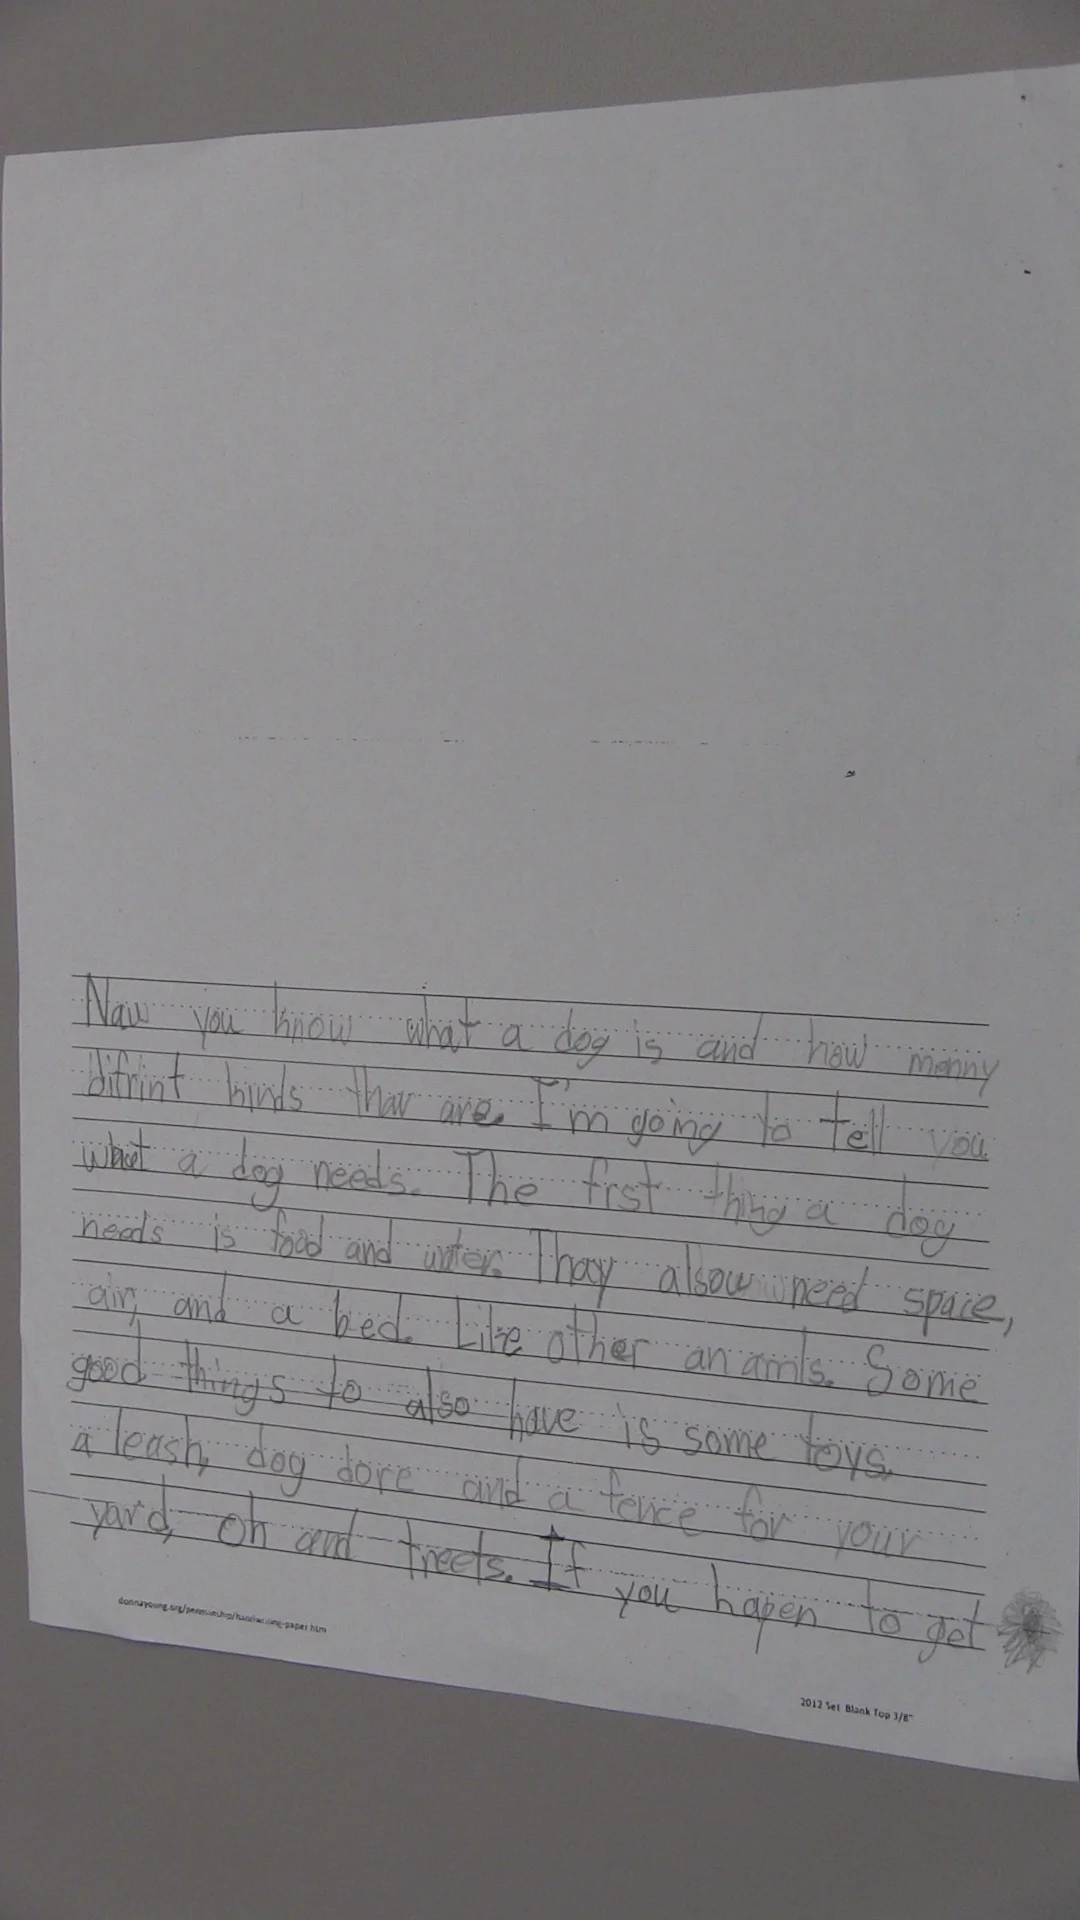 Naw you know what a dog is and how manny
difrint kinds thar are. I'm going to tell you
what a dog needs. The frst thing a dog
needs is food and water. Thay alsow need space,
air, and a bed. Like other anamls. Some
good things to also have is some toys,
a leash, dog dore and a fence for your
yard, oh and treets. If you hapen to get
donnayoung.org/penmanship/handwriting-paper.htm
2012 Set Blank Top 3/8"